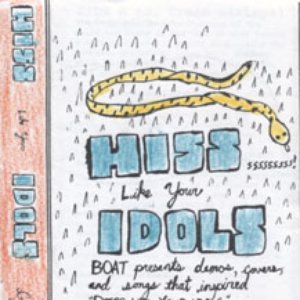 HISS
Like Your
IDOLS
HISS
sssssss!
Like Your
IDOLS
BOAT presents demos, covers,
and songs that inspired